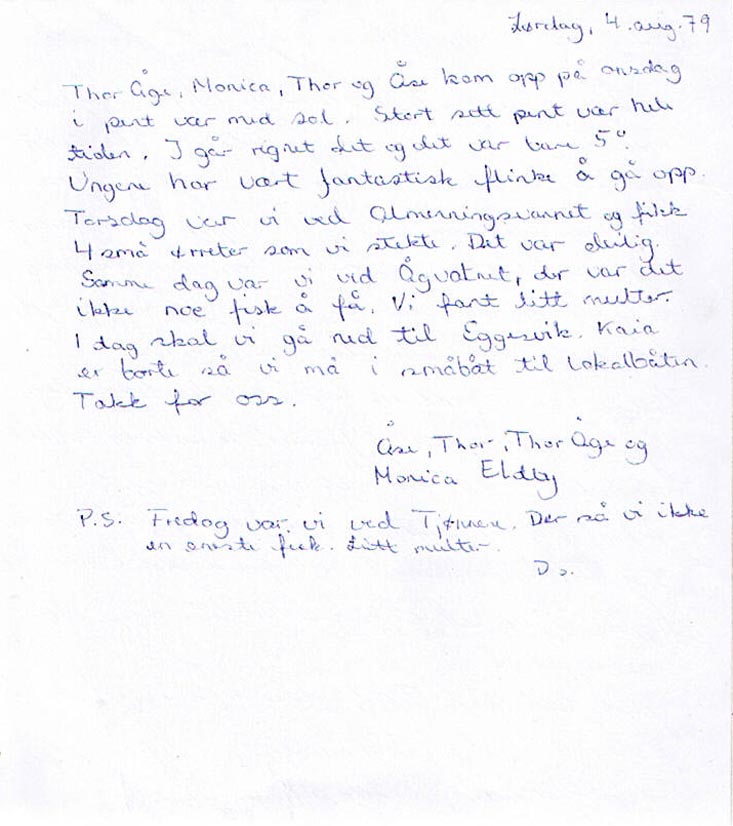 Lørdag, 4. aug. 79
Thor Åge, Monica, Thor og Åse kom opp på onsdag
i pent vær med sol. Stort sett pent vær hele
tiden. I går regnet det og det var bare 5°.
Ungene har vært fantastisk flinke å gå opp.
Torsdag var vi ved Almenningsvannet og fikk
4 små ørreter som vi stekte. Det var deilig.
Samme dag var vi ved Ågvatnet, der var det
ikke noe fisk å få. Vi fant litt multer.
I dag skal vi gå ned til Eggesvik. Kaia
er borte så vi må i småbåt til Lokalbåten.
Takk for oss.
Åse, Thor, Thor Åge og
Monica Eldby
P.S. Fredag var vi ved Tjønnene. Der så vi ikke
en eneste fisk. Litt multer.
Ds.